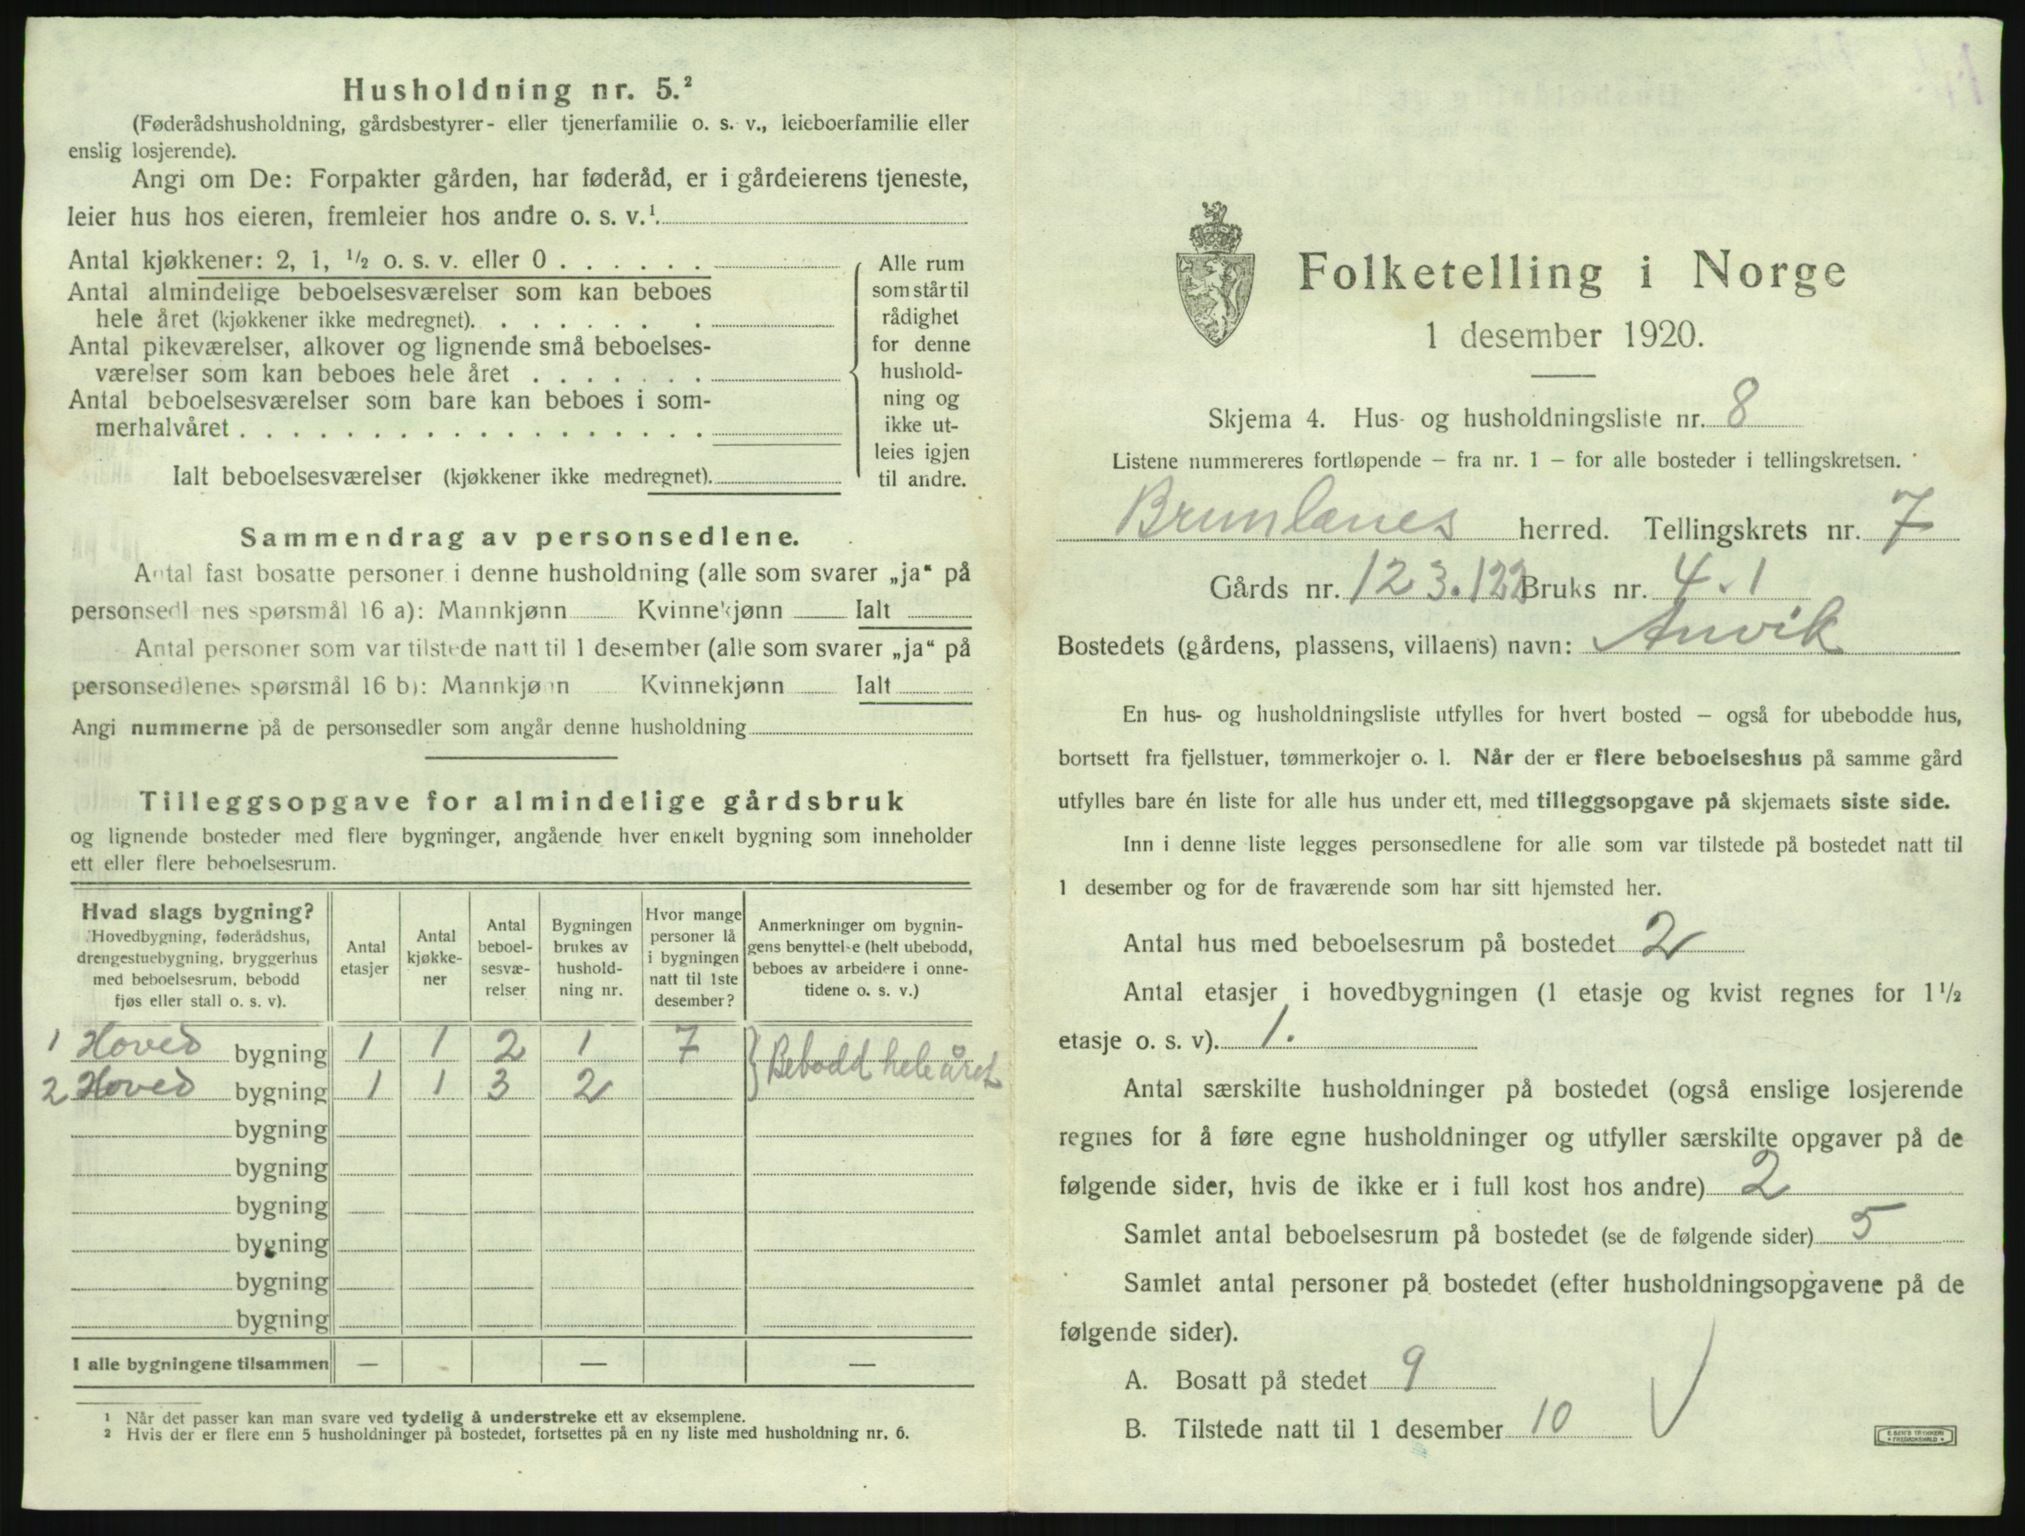 Husholdning nr. 5.²
(Føderådshusholdning, gårdsbestyrer- eller tjenerfamilie o. s. v., leieboerfamilie eller
enslig losjerende).
Angi om De: Forpakter gården, har føderåd, er i gårdeierens tjeneste,
leier hus hos eieren, fremleier hos andre o. s. v.¹
Antal kjøkkener: 2, 1, ½ o. s. v. eller 0 . . . . . .
Antal almindelige beboelsesværelser som kan beboes
hele året (kjøkkener ikke medregnet). . . . . . . .
Antal pikeværelser, alkover og lignende små beboelses-
værelser som kan beboes hele året . . . . . . .
Antal beboelsesværelser som bare kan beboes i som-
merhalvåret . . . . . . . . . . . . . . . . . .
Ialt beboelsesværelser (kjøkkener ikke medregnet).
Alle rum
som står til
rådighet
for denne
hushold-
ning og
ikke ut-
leies igjen
til andre.
Sammendrag av personsedlene.
Antal fast bosatte personer i denne husholdning (alle som svarer „ja“ på
personsedlenes spørsmål 16 a): Mannkjønn Kvinnekjønn Ialt
Antal personer som var tilstede natt til 1 desember (alle som svarer „ja“ på
personsedlenes spørsmål 16 b): Mannkjønn Kvinnekjønn Ialt
Angi nummerne på de personsedler som angår denne husholdning
Tilleggsopgave for almindelige gårdsbruk
og lignende bosteder med flere bygninger, angående hver enkelt bygning som inneholder
ett eller flere beboelsesrum.
Hvad slags bygning?
Hovedbygning, føderådshus,
drengestuebygning, bryggerhus
med beboelsesrum, bebodd
fjøs eller stall o. s. v).
Antal
etasjer
Antal
kjøkke-
ner
Antal
beboel-
sesvæ-
relser
Bygningen
brukes av
hushold-
ning nr.
Hvor mange
personer lå
i bygningen
natt til 1ste
desember?
Anmerkninger om bygnin-
gens benyttelse (helt ubebodd,
beboes av arbeidere i onne-
tidene o. s. v.)
1 Hoved bygning 1 1 2 1 7 } Bebodd hele året
2 Hoved bygning 1 1 3 2
bygning
bygning
bygning
bygning
bygning
bygning
I alle bygningene tilsammen — — —
¹ Når det passer kan man svare ved tydelig å understreke ett av eksemplene.
² Hvis der er flere enn 5 husholdninger på bostedet, fortsettes på en ny liste med husholdning nr. 6.
Folketelling i Norge
1 desember 1920.
Skjema 4. Hus- og husholdningsliste nr. 8
Listene nummereres fortløpende – fra nr. 1 – for alle bosteder i tellingskretsen.
Brunlanes herred. Tellingskrets nr. 7
Gårds nr. 123.122 Bruks nr. 4.1
Bostedets (gårdens, plassens, villaens) navn: Anvik
En hus- og husholdningsliste utfylles for hvert bosted – også for ubebodde hus,
bortsett fra fjellstuer, tømmerkojer o. l. Når der er flere beboelseshus på samme gård
utfylles bare én liste for alle hus under ett, med tilleggsopgave på skjemaets siste side.
Inn i denne liste legges personsedlene for alle som var tilstede på bostedet natt til
1 desember og for de fraværende som har sitt hjemsted her.
Antal hus med beboelsesrum på bostedet 2
Antal etasjer i hovedbygningen (1 etasje og kvist regnes for 1½
etasje o. s. v). 1.
Antal særskilte husholdninger på bostedet (også enslige losjerende
regnes for å føre egne husholdninger og utfyller særskilte opgaver på de
følgende sider, hvis de ikke er i full kost hos andre) 2
Samlet antal beboelsesrum på bostedet (se de følgende sider) 5
Samlet antal personer på bostedet (efter husholdningsopgavene på de
følgende sider).
A. Bosatt på stedet 9
B. Tilstede natt til 1 desember 10